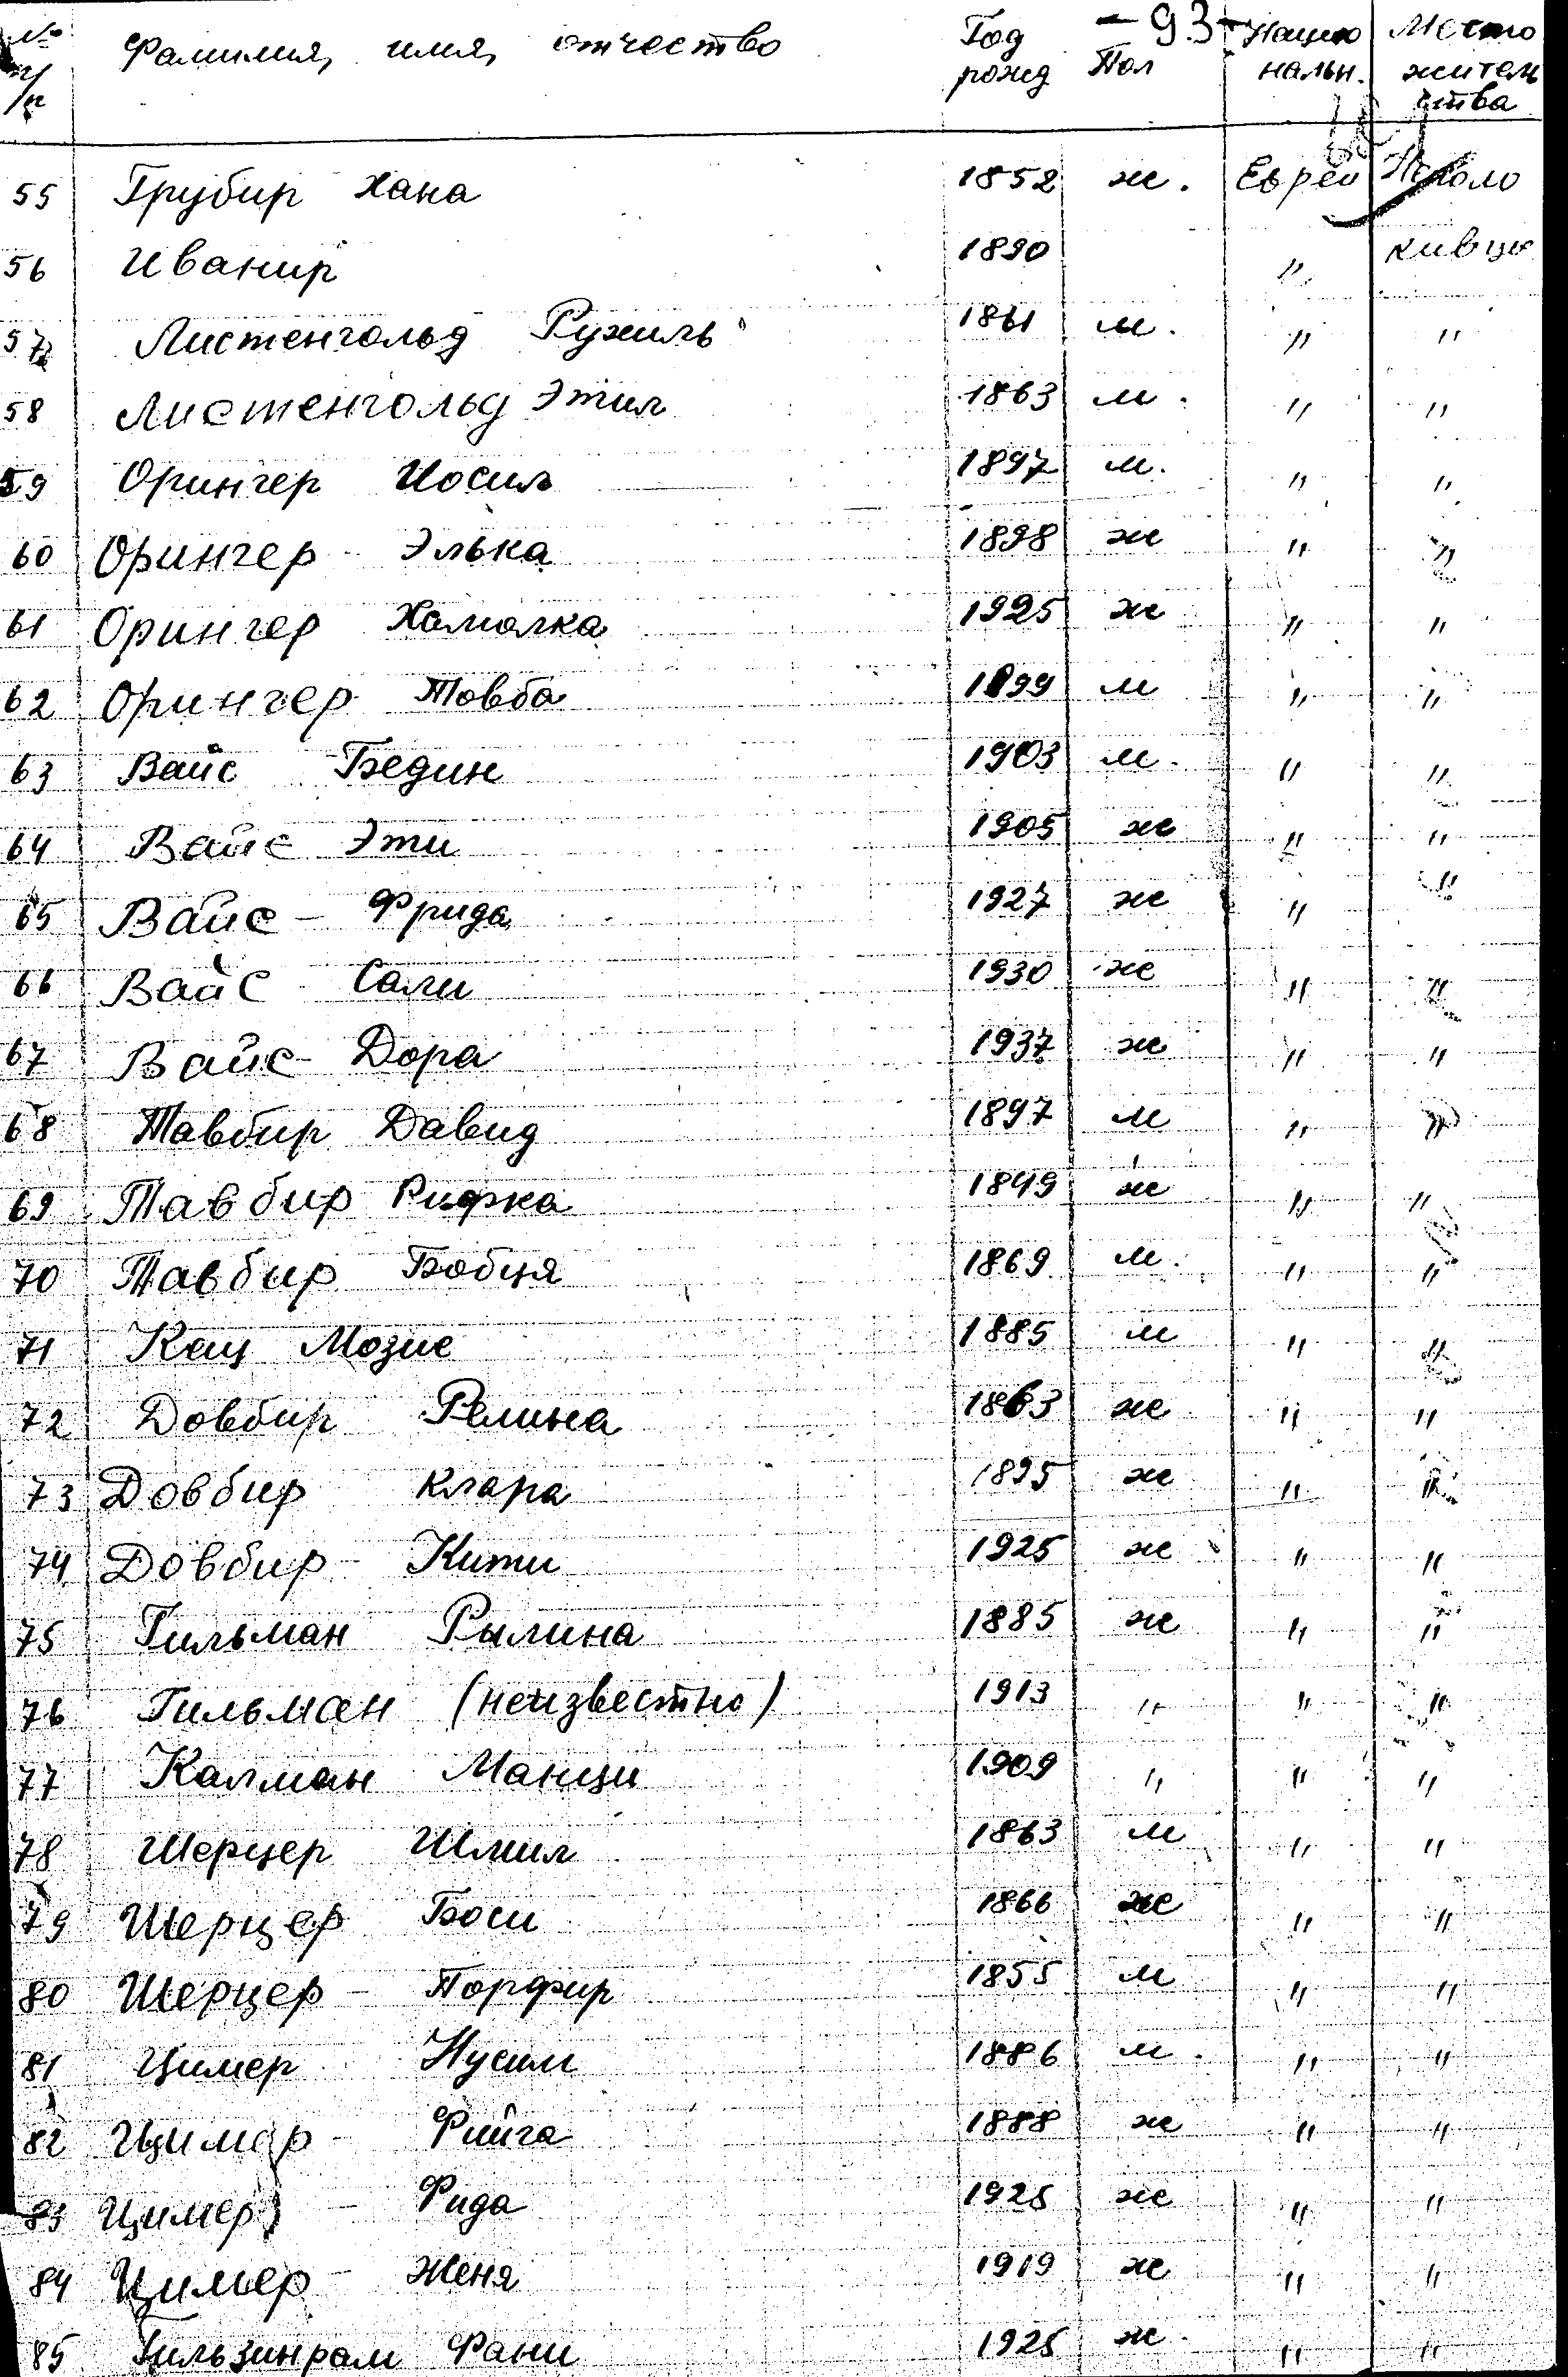 - 93 -
№ п/п Фамилия, имя, отчество Год рожд Пол Нацио нальн. Место житель ства
55 Грубир Хана 1852 ж. Еврей Неполо
56 Иванир 1890 " кивцы
57 Листенгольд Рухиль 1861 м. " "
58 Листенгольд Этил 1863 м. " "
59 Орингер Иосил 1897 м. " "
60 Орингер Элька 1898 ж " "
61 Орингер Хамалка 1925 ж " "
62 Орингер Товба 1899 м " "
63 Вайс Бедин 1903 м. " "
64 Вайс Эти 1905 ж " "
65 Вайс - Фрида 1927 ж " "
66 Вайс Сали 1930 ж " "
67 Вайс - Дора 1937 ж " "
68 Тавбир Давид 1897 м " "
69 Тавбир Рифка 1849 ж " "
70 Тавбир Бобця 1869 м. " "
71 Кац Мозис 1885 м " "
72 Довбир Релина 1863 ж " "
73 Довбир Клара 1895 ж " "
74 Довбир - Кити 1925 ж " "
75 Гильман Рылина 1885 ж " "
76 Гильман (неизвестно) 1913 " " "
77 Калман Манци 1909 " " "
78 Шерцер Шмил 1863 м " "
79 Шерцер Боси 1866 ж " "
80 Шерцер - Порфир 1855 м " "
81 Цимер Нусим 1886 м. " "
82 Цимер - Фейга 1888 ж " "
83 Цимер - Рида 1925 ж " "
84 Цимер - Женя 1919 ж " "
85 Гильзинрам Фани 1925 ж. " "